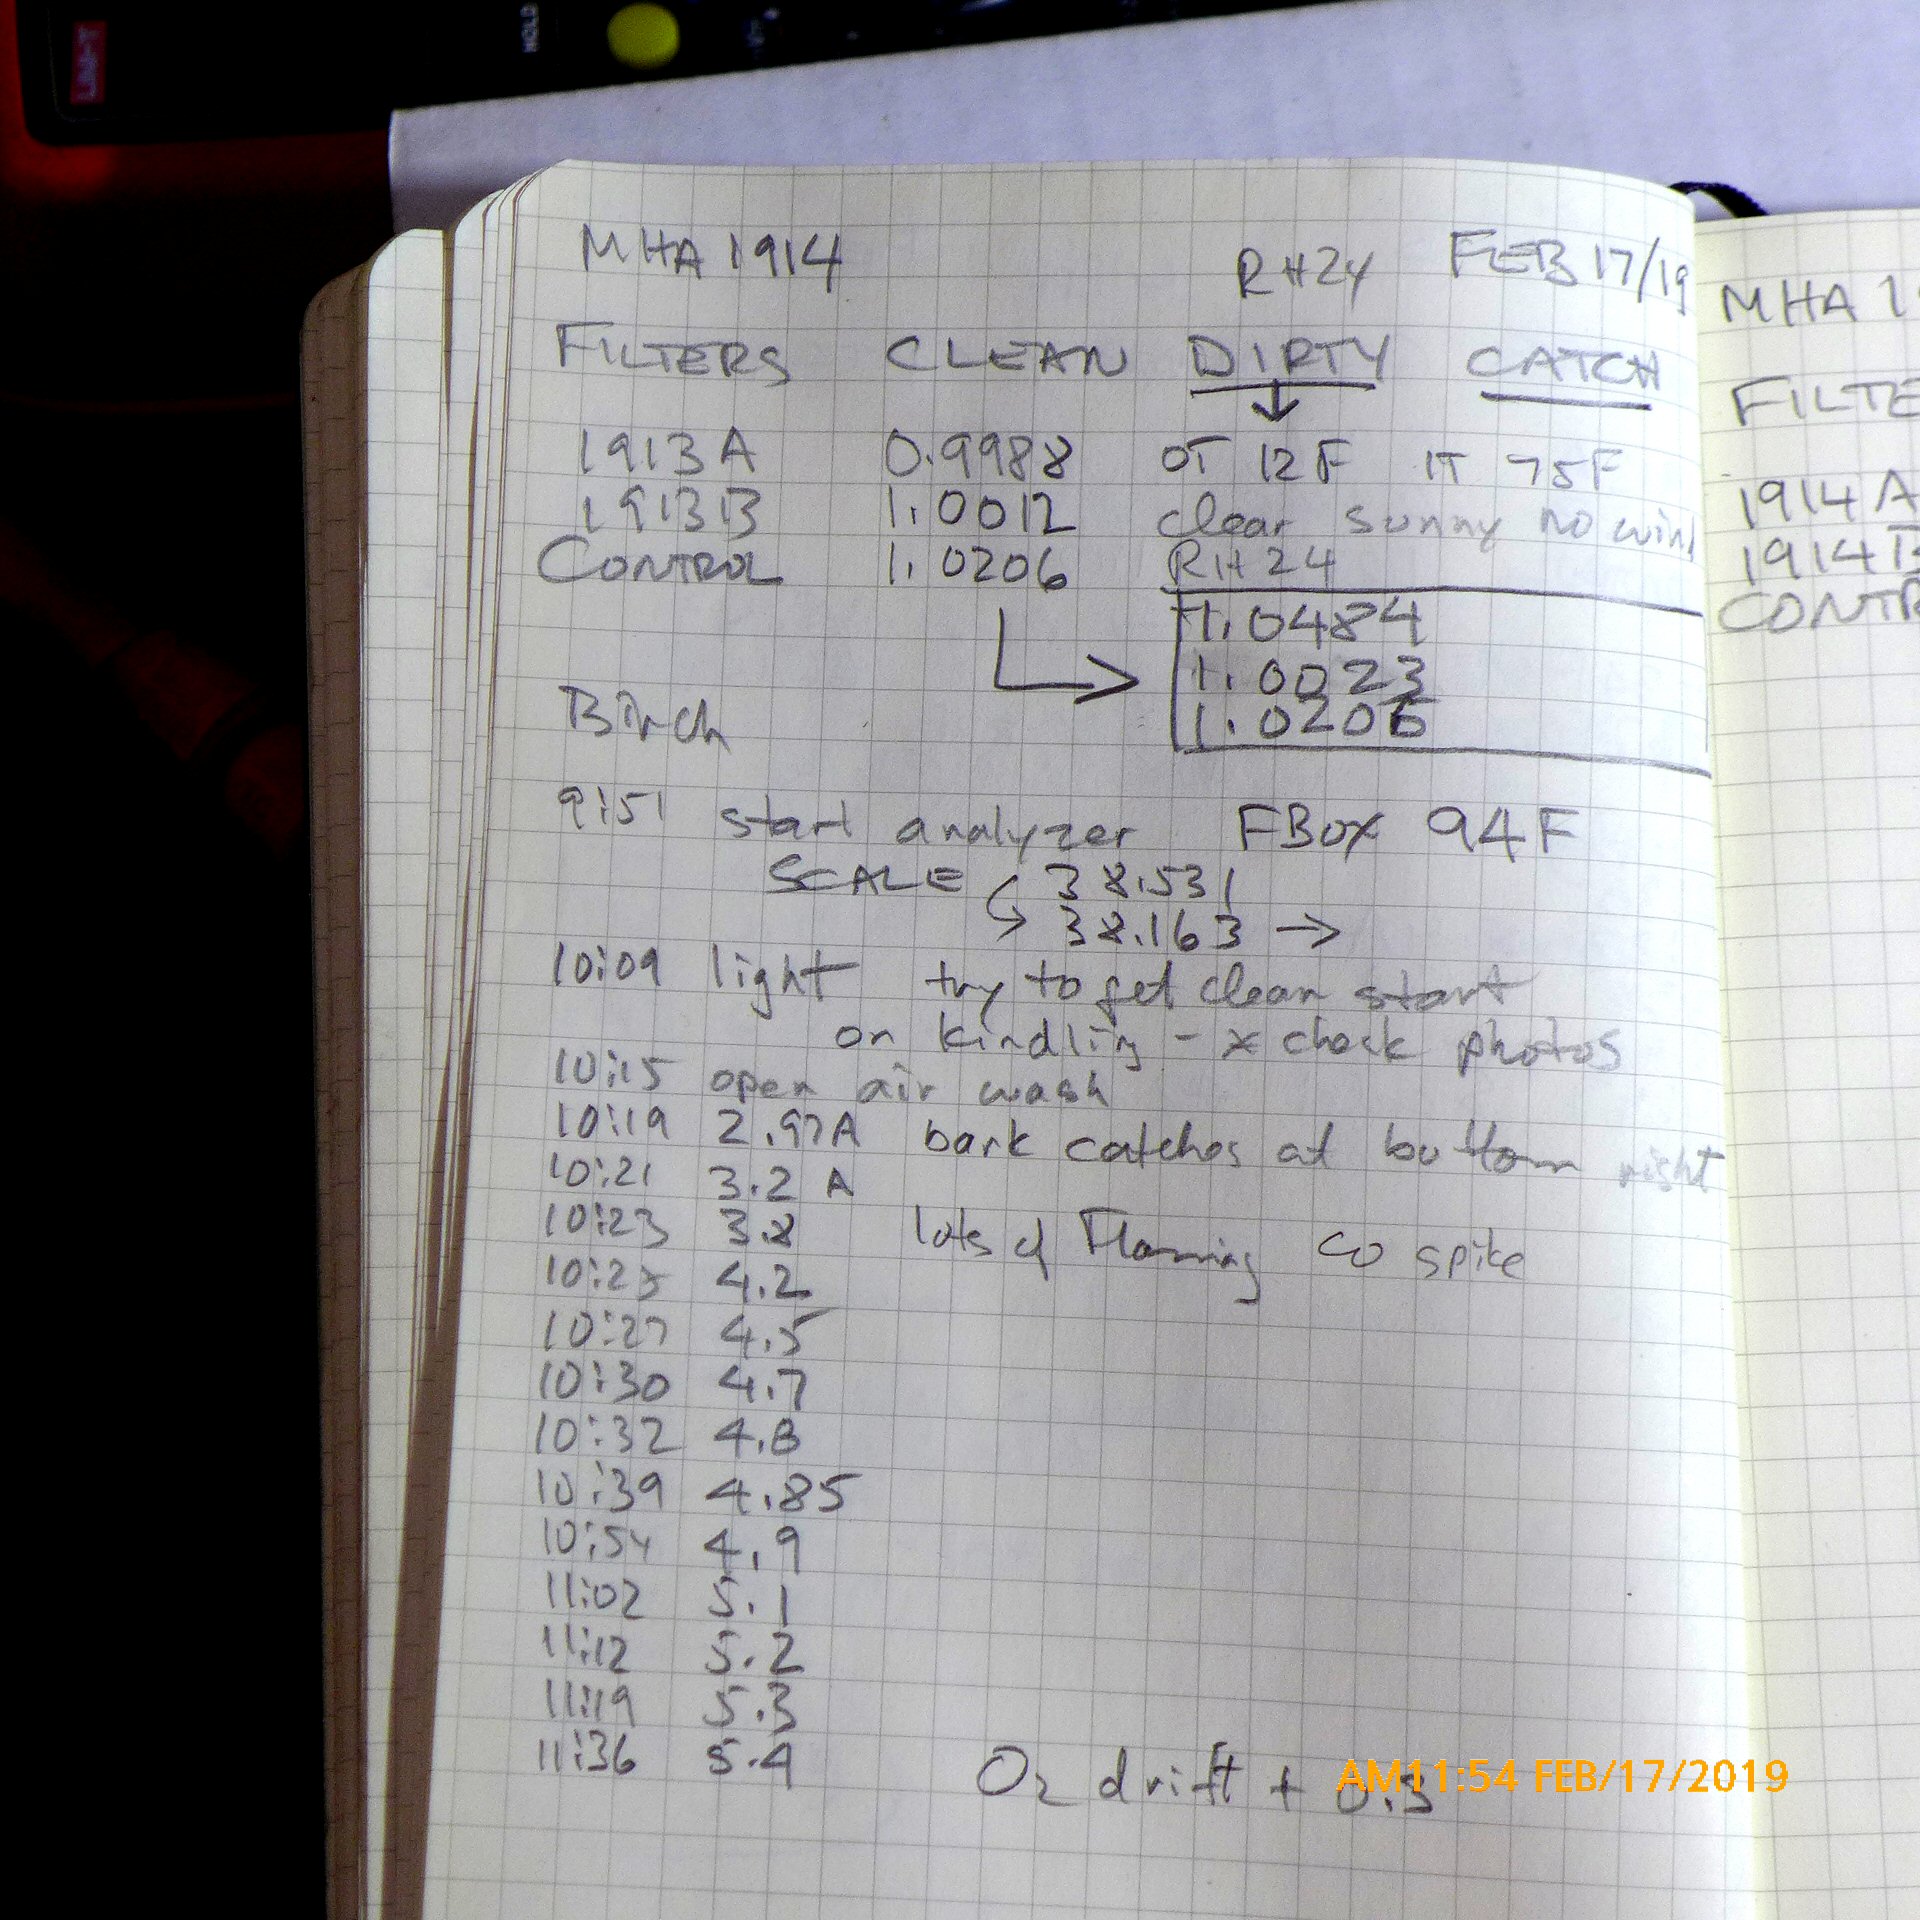 UNI-T
HOLD
MHA 1914 RH24 FEB 17/19
FILTERS CLEAN DIRTY CATCH
1913A 0.9988 OT 12F IT 75F
1913B 1.0012 clear sunny no wind
CONTROL 1.0206 RH24
1.0484
1.0023
1.0206
Birch
9:51 start analyzer FBOX 94F
SCALE 38.531
38.163 →
10:09 light try to get clean start
on kindling - x check photos
10:15 open air wash
10:19 2.97A bark catches at bottom right
10:21 3.2 A
10:23 3.8 lots of Flaming CO spike
10:25 4.2
10:27 4.5
10:30 4.7
10:32 4.8
10:39 4.85
10:54 4.9
11:02 5.1
11:12 5.2
11:19 5.3
11:36 5.4
O2 drift + 0.3
AM11:54 FEB/17/2019
MHA 19
FILTE
1914A
1914B
CONTR